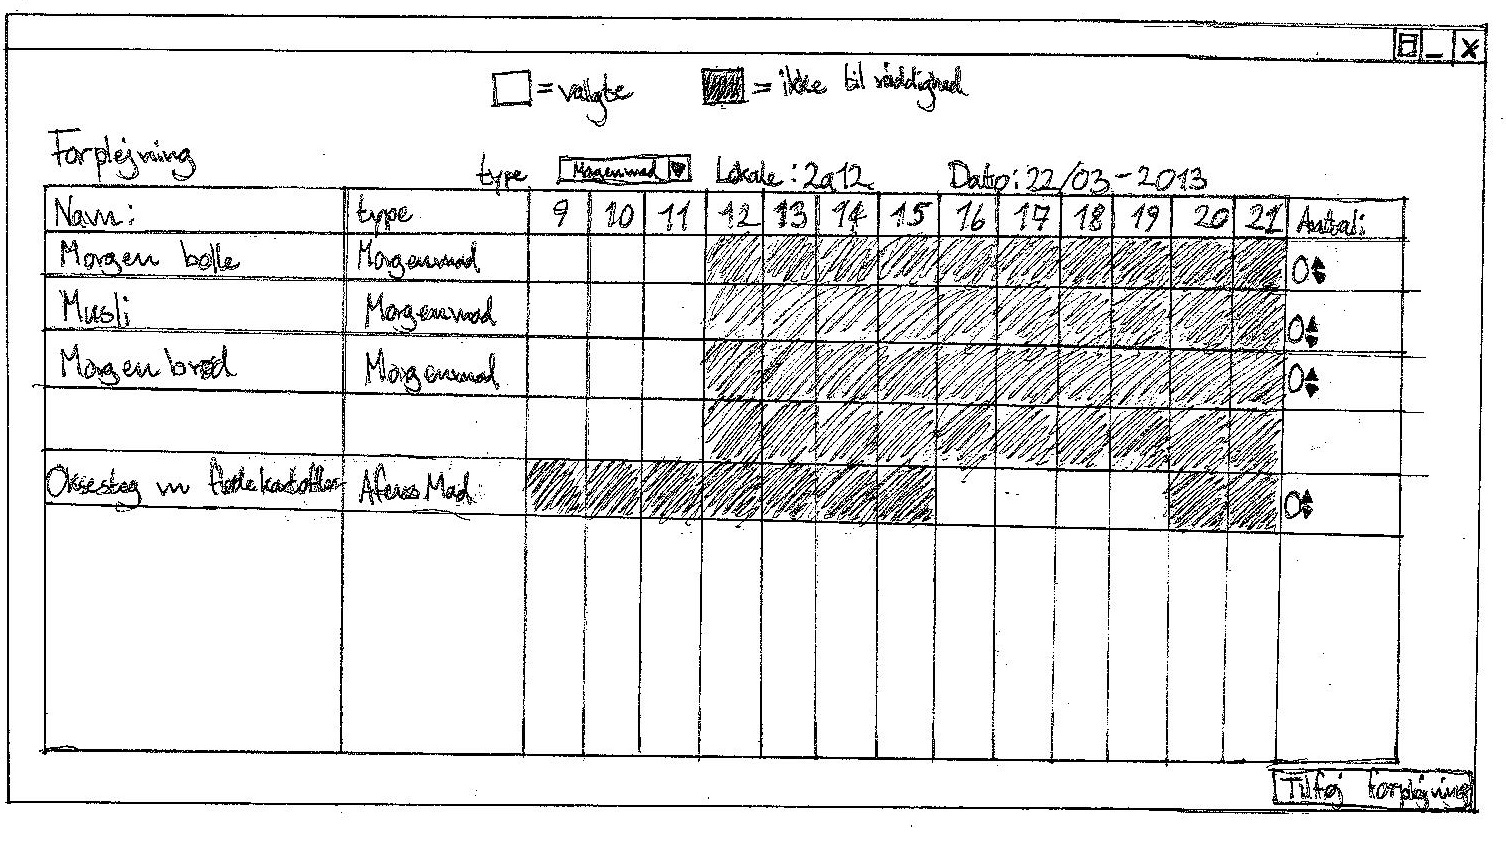 = valgte = ikke til råddighed
Forplejning
type Morgenmad Lokale: 2a12 Dato: 22/03-2013
Navn: type 9 10 11 12 13 14 15 16 17 18 19 20 21 Antal:
Morgen bolle Morgenmad 0
Musli Morgenmad 0
Morgen brød Morgenmad 0
Oksesteg m flødekartofler Aftens Mad 0
Tilføj forplejning